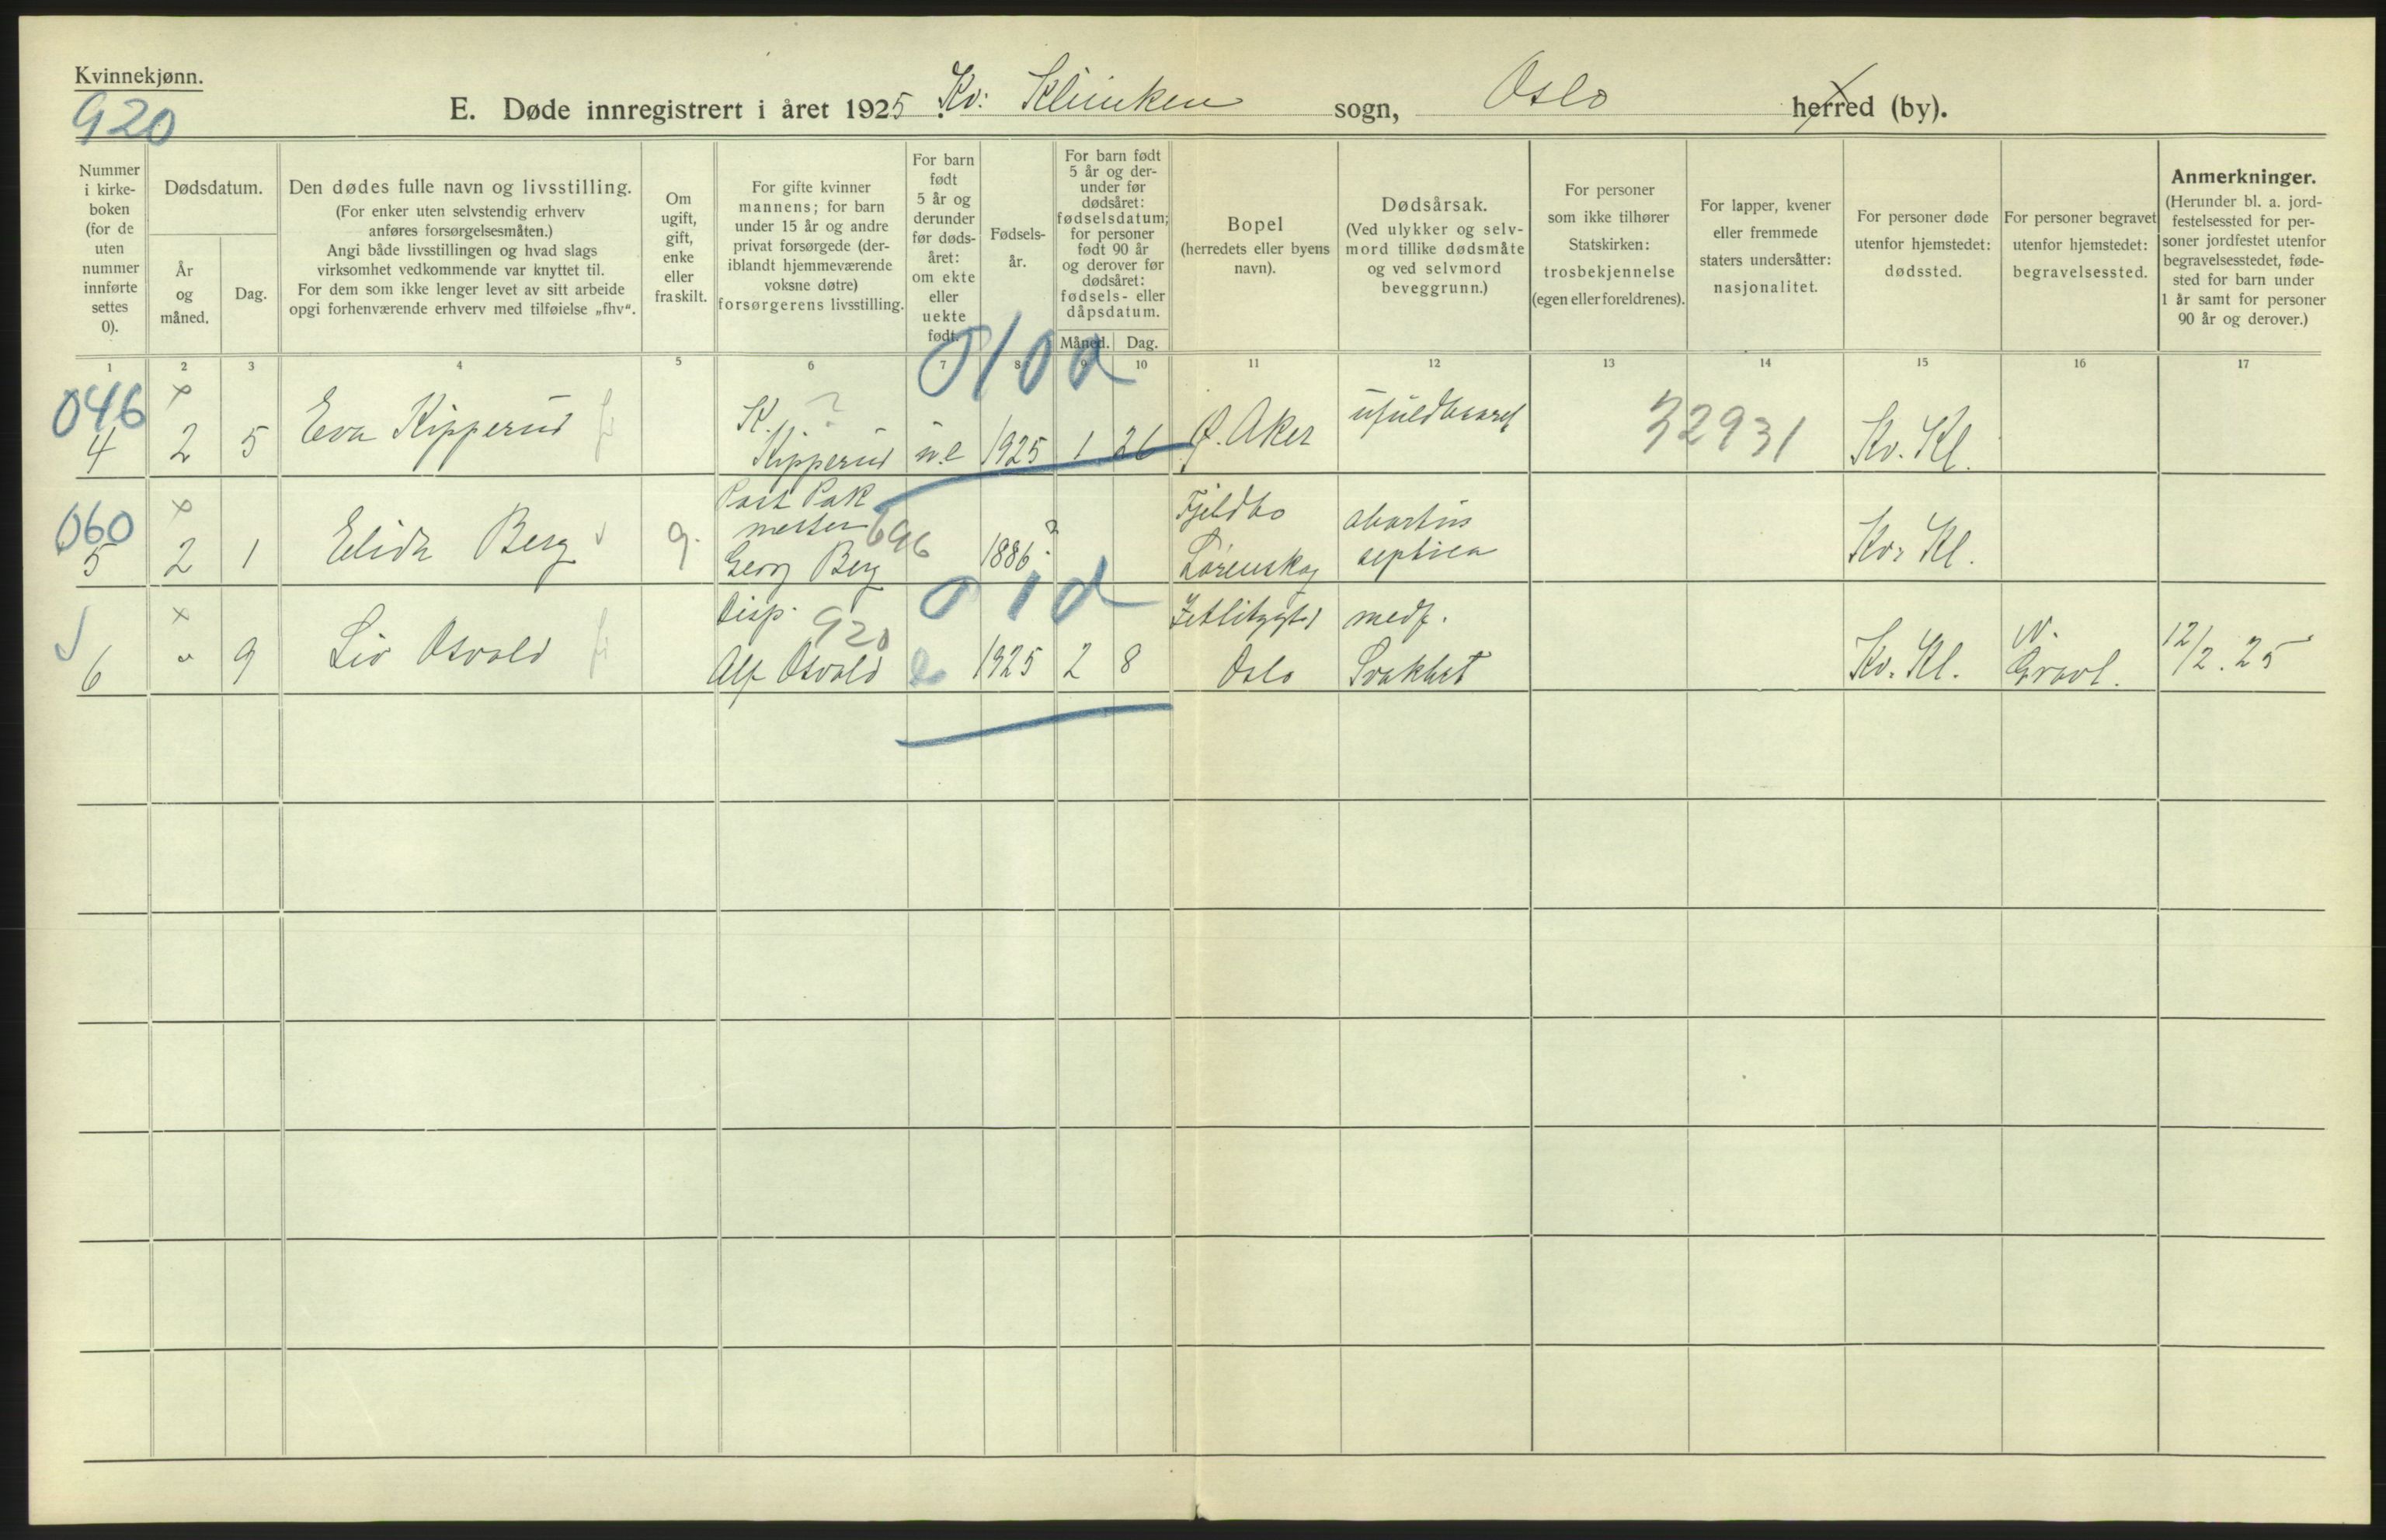 Kvinnekjønn.
920
E. Døde innregistrert i året 1925. Kv: Klinken sogn, Oslo herred (by).
Nummer i kirke- boken (for de uten nummer innførte settes 0).
Dødsdatum.
År og måned.
Dag.
Den dødes fulle navn og livsstilling.
(For enker uten selvstendig erhverv
anføres forsørgelsesmåten.)
Angi både livsstillingen og hvad slags
virksomhet vedkommende var knyttet til.
For dem som ikke lenger levet av sitt arbeide
opgi forhenværende erhverv med tilføielse „fhv“.
Om ugift, gift, enke eller fraskilt.
For gifte kvinner
mannens; for barn
under 15 år og andre
privat forsørgede (der-
iblandt hjemmeværende
voksne døtre)
forsørgerens livsstilling.
For barn født 5 år og derunder før døds- året: om ekte eller uekte født.
Fødsels- år.
For barn født
5 år og der-
under før
dødsåret:
fødselsdatum;
for personer
født 90 år
og derover før
dødsåret:
fødsels- eller
dåpsdatum.
Måned. Dag.
Bopel
(herredets eller byens
navn).
Dødsårsak.
(Ved ulykker og selv-
mord tillike dødsmåte
og ved selvmord
beveggrunn.)
For personer
som ikke tilhører
Statskirken:
trosbekjennelse
(egen eller foreldrenes).
For lapper, kvener
eller fremmede
staters undersåtter:
nasjonalitet.
For personer døde
utenfor hjemstedet:
dødssted.
For personer begravet
utenfor hjemstedet:
begravelsessted.
Anmerkninger.
(Herunder bl. a. jord-
festelsessted for per-
soner jordfestet utenfor
begravelsesstedet, føde-
sted for barn under
1 år samt for personer
90 år og derover.)
1 2 3 4 5 6 7 8 9 10 11 12 13 14 15 16 17
046 x 0 10 d
4 2 5 Eva Kipperud K. ? Kipperud u.e 1925 1 26 Ø. Aker ufuldbaaret 32931 Kv. Kl.
060 x
5 2 1 Elida Berg g. Post Pak mester 696 Georg Berg 1886 ? Fjeldbo Lørenskog abortus septica Kv. Kl.
0 1 d
x
6 " 9 Liv Osvald Disp. 920 Alf Osvald e 1925 2 8 Oslo medf. Svakhet Kv. Kl. V. Gravl. 12/2. 25